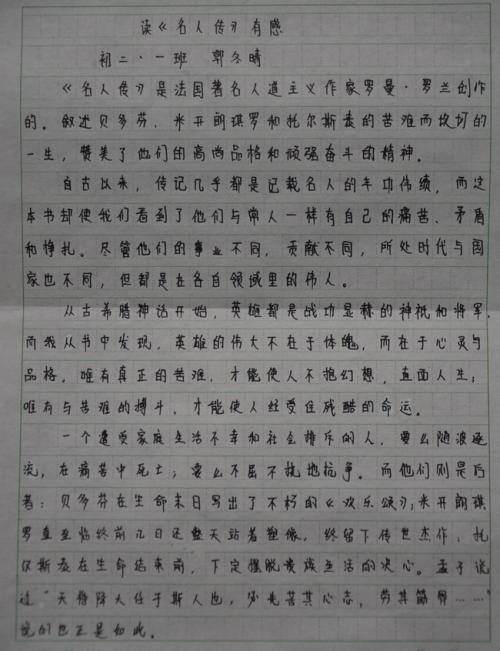 读《名人传》有感
初二·一班 郭冬晴
《名人传》是法国著名人道主义作家罗曼·罗兰创作
的。叙述贝多芬、米开朗琪罗和托尔斯泰的苦难而坎坷的
一生，赞美了他们的高尚品格和顽强奋斗的精神。
自古以来，传记几乎都是记载名人的丰功伟绩，而这
本书却使我们看到了他们与常人一样有自己的痛苦、矛盾
和挣扎。尽管他们的事业不同，贡献不同，所处时代与国
家也不同，但都是在各自领域里的伟人。
从古希腊神话开始，英雄都是战功显赫的神祇和将军，
而我从书中发现，英雄的伟大不在于体魄，而在于心灵与
品格，唯有真正的苦难，才能使人不抱幻想，直面人生；
唯有与苦难的搏斗，才能使人经受住残酷的命运。
一个遭受家庭生活不幸和社会排斥的人，要么随波逐
流，在痛苦中死亡；要么不屈不挠地抗争。而他们则是后
者：贝多芬在生命末日写出了不朽的《欢乐颂》；米开朗琪
罗直至临终前几日还整天站着塑像，终留下传世杰作；托
尔斯泰在生命结束前，下定摆脱贵族生活的决心。孟子说
过“天将降大任于斯人也，必先苦其心志，劳其筋骨……”
说的也正是如此。